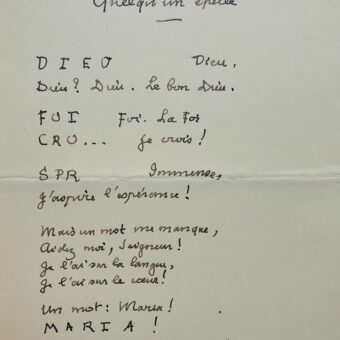 Quelqu'un épelle
D I E U Dieu,
Dieu? Dieu. Le bon Dieu.
F O I Foi. La Foi
C R O ... Je crois!
S P R Immense,
J'aspire l'espérance!
Mais un mot me manque,
Aidez moi, Seigneur!
Je l'ai sur la langue,
Je l'ai sur le cœur!
Un mot: Maria!
M A R I A !